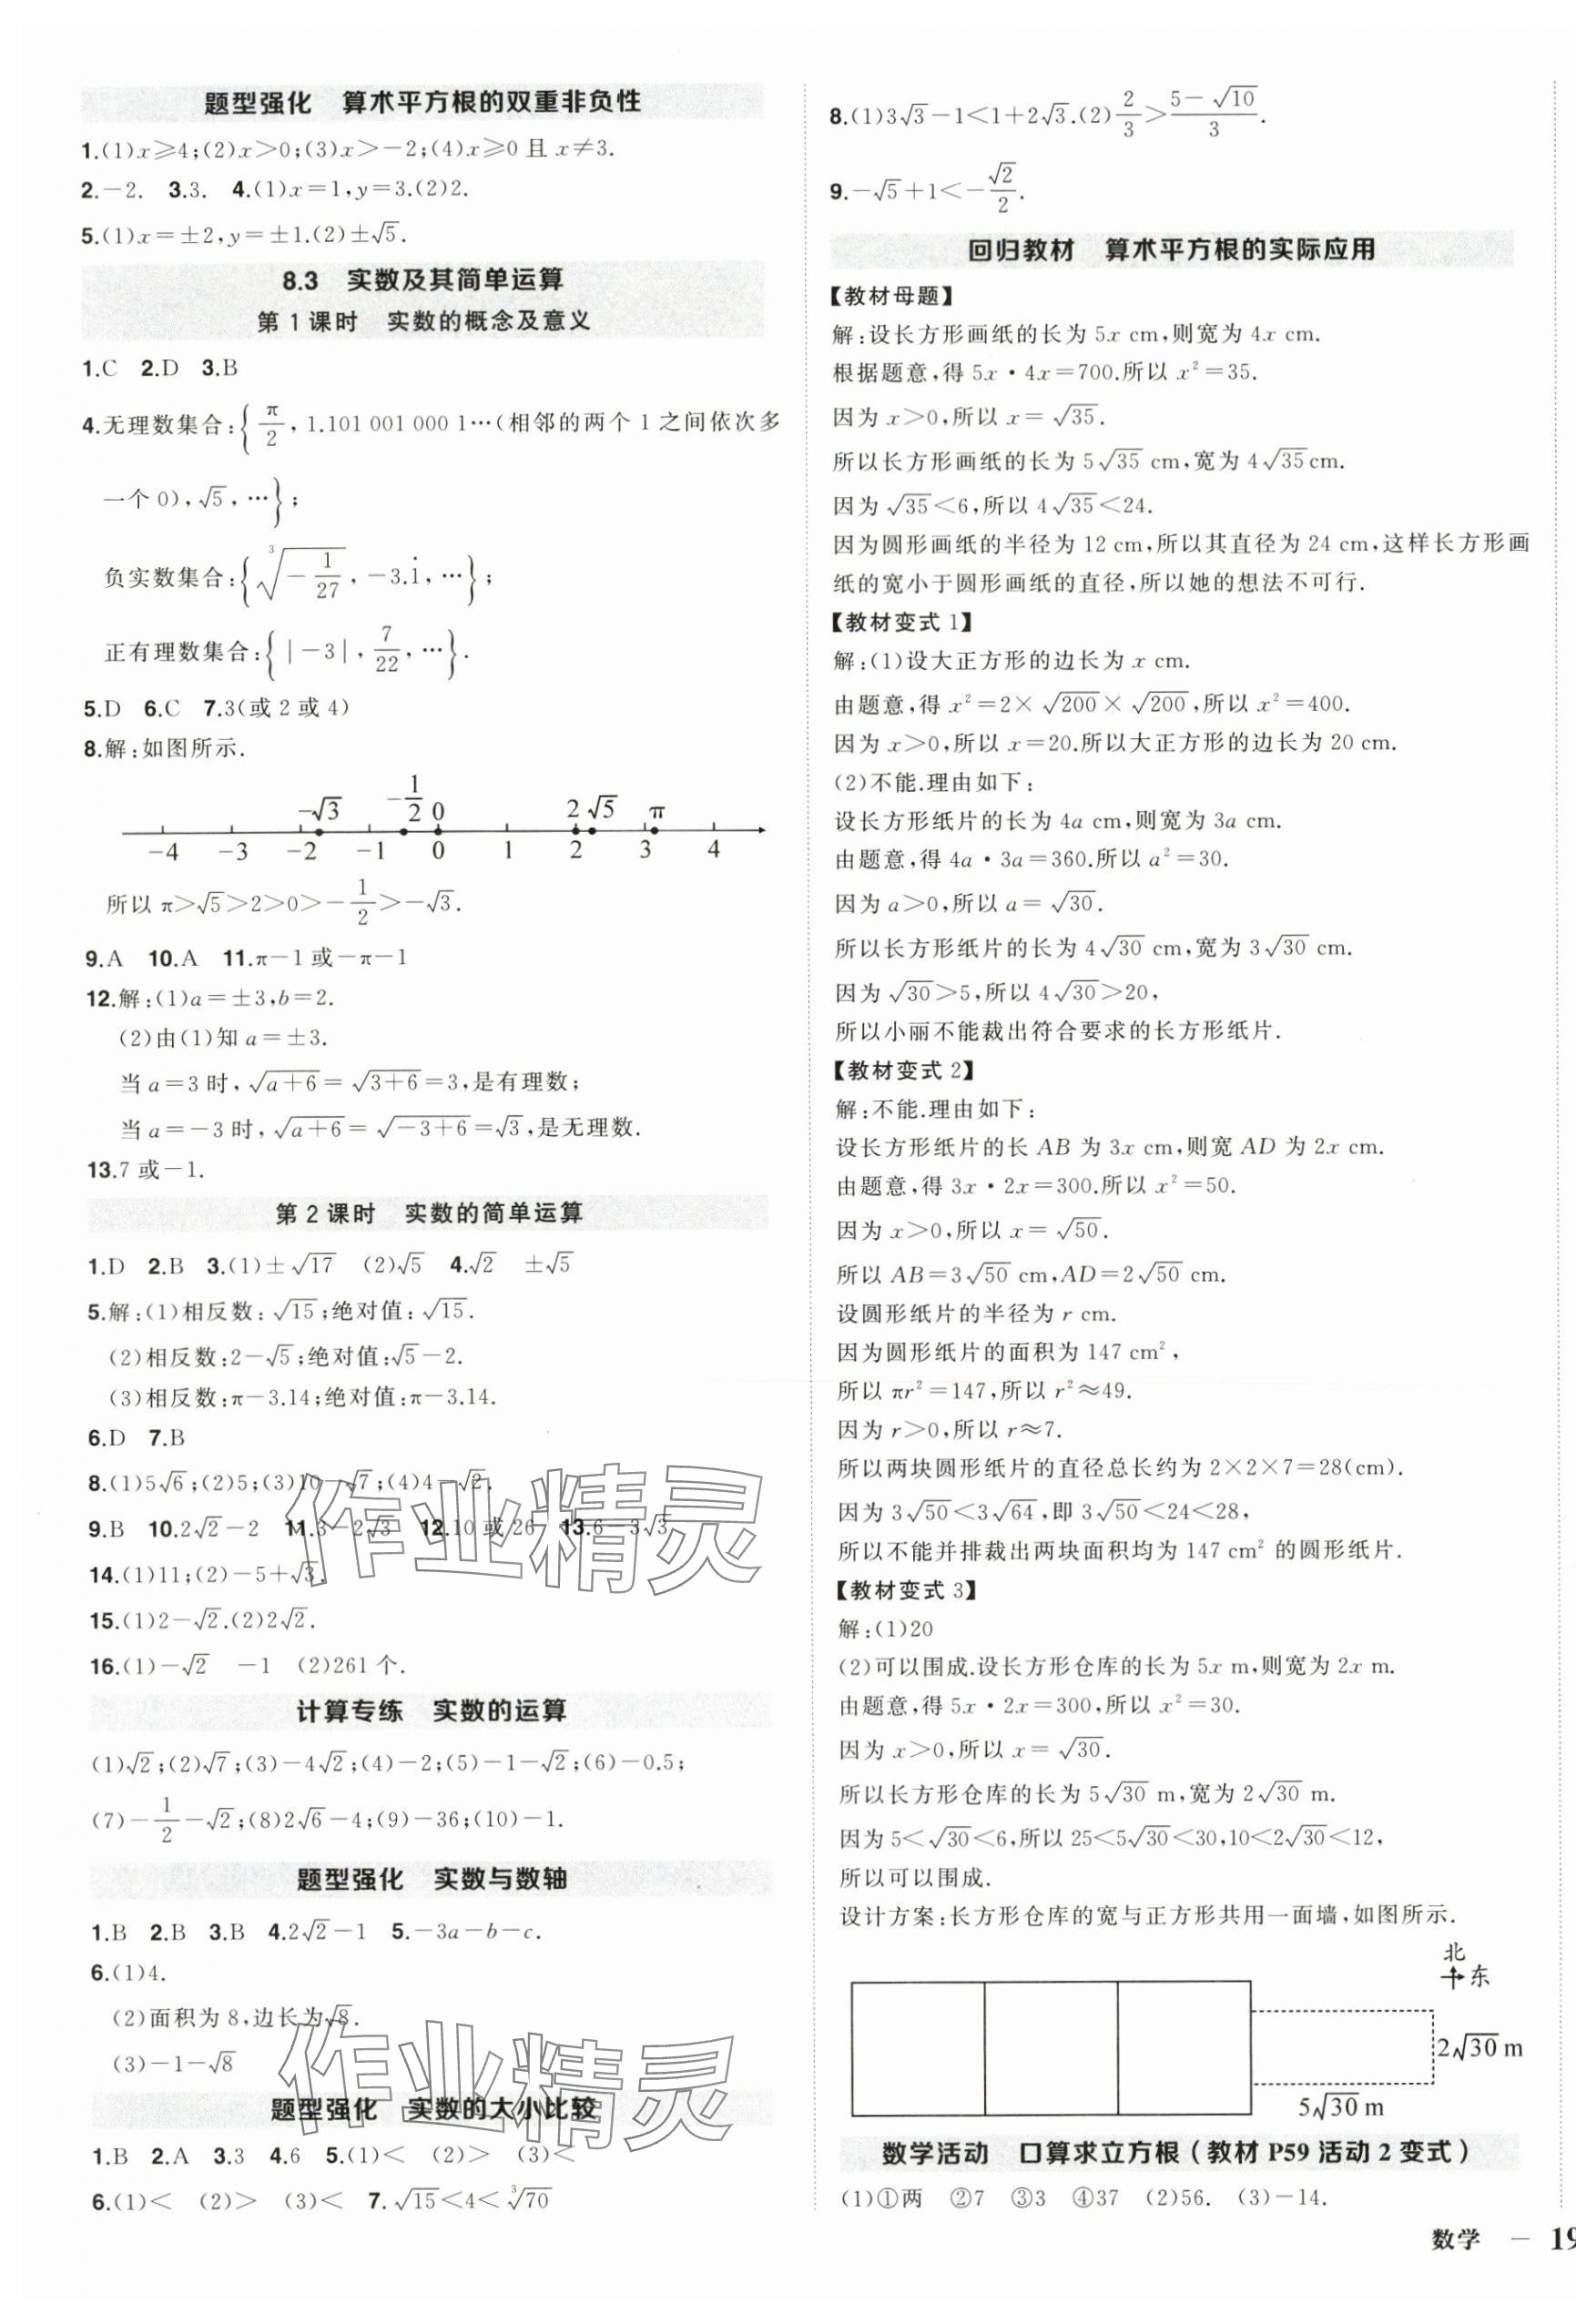 题型强化 算术平方根的双重非负性
1.(1)x≥4;(2)x>0;(3)x>-2;(4)x≥0 且 x≠3.
2.-2. 3.3. 4.(1)x=1,y=3.(2)2.
5.(1)x=±2,y=±1.(2)±√5.
8.3 实数及其简单运算
第 1 课时 实数的概念及意义
1.C 2.D 3.B
4.无理数集合:{π/2, 1.101 001 000 1…(相邻的两个 1 之间依次多
一个 0),√5,…};
负实数集合:{∛(-1/27), -3.i̇, …};
正有理数集合:{|-3|, 7/22, …}.
5.D 6.C 7.3(或 2 或 4)
8.解:如图所示.
-√3 -1/2 0 2 √5 π
-4 -3 -2 -1 0 1 2 3 4
所以 π>√5>2>0>-1/2>-√3.
9.A 10.A 11.π-1 或-π-1
12.解:(1)a=±3,b=2.
(2)由(1)知 a=±3.
当 a=3 时,√(a+6)=√(3+6)=3,是有理数;
当 a=-3 时,√(a+6)=√(-3+6)=√3,是无理数.
13.7 或-1.
第 2 课时 实数的简单运算
1.D 2.B 3.(1)±√17 (2)√5 4.√2 ±√5
5.解:(1)相反数:√15;绝对值:√15.
(2)相反数:2-√5;绝对值:√5-2.
(3)相反数:π-3.14;绝对值:π-3.14.
6.D 7.B
8.(1)5√6;(2)5;(3)10-√7;(4)4-√2.
9.B 10.2√2-2 11.3-2√3 12.10 或 26 13.6-3√3
14.(1)11;(2)-5+√3.
15.(1)2-√2.(2)2√2.
16.(1)-√2 -1 (2)261 个.
计算专练 实数的运算
(1)√2;(2)√7;(3)-4√2;(4)-2;(5)-1-√2;(6)-0.5;
(7)-1/2-√2;(8)2√6-4;(9)-36;(10)-1.
题型强化 实数与数轴
1.B 2.B 3.B 4.2√2-1 5.-3a-b-c.
6.(1)4.
(2)面积为 8,边长为√8.
(3)-1-√8
题型强化 实数的大小比较
1.B 2.A 3.3 4.6 5.(1)< (2)> (3)<
6.(1)< (2)> (3)< 7.√15<4<∛70
8.(1)3√3-1<1+2√3.(2)2/3>(5-√10)/3.
9.-√5+1<-√2/2.
回归教材 算术平方根的实际应用
【教材母题】
解:设长方形画纸的长为 5x cm,则宽为 4x cm.
根据题意,得 5x·4x=700.所以 x²=35.
因为 x>0,所以 x=√35.
所以长方形画纸的长为 5√35 cm,宽为 4√35cm.
因为 √35<6,所以 4√35<24.
因为圆形画纸的半径为 12 cm,所以其直径为 24 cm,这样长方形画
纸的宽小于圆形画纸的直径,所以她的想法不可行.
【教材变式 1】
解:(1)设大正方形的边长为 x cm.
由题意,得 x²=2×√200×√200,所以 x²=400.
因为 x>0,所以 x=20.所以大正方形的边长为 20 cm.
(2)不能.理由如下:
设长方形纸片的长为 4a cm,则宽为 3a cm.
由题意,得 4a·3a=360.所以 a²=30.
因为 a>0,所以 a=√30.
所以长方形纸片的长为 4√30 cm,宽为 3√30 cm.
因为 √30>5,所以 4√30>20,
所以小丽不能裁出符合要求的长方形纸片.
【教材变式 2】
解:不能.理由如下:
设长方形纸片的长 AB 为 3x cm,则宽 AD 为 2x cm.
由题意,得 3x·2x=300.所以 x²=50.
因为 x>0,所以 x=√50.
所以 AB=3√50 cm,AD=2√50 cm.
设圆形纸片的半径为 r cm.
因为圆形纸片的面积为 147 cm²,
所以 πr²=147,所以 r²≈49.
因为 r>0,所以 r≈7.
所以两块圆形纸片的直径总长约为 2×2×7=28(cm).
因为 3√50<3√64,即 3√50<24<28,
所以不能并排裁出两块面积均为 147 cm² 的圆形纸片.
【教材变式 3】
解:(1)20
(2)可以围成.设长方形仓库的长为 5x m,则宽为 2x m.
由题意,得 5x·2x=300,所以 x²=30.
因为 x>0,所以 x=√30.
所以长方形仓库的长为 5√30 m,宽为 2√30 m.
因为 5<√30<6,所以 25<5√30<30,10<2√30<12,
所以可以围成.
设计方案:长方形仓库的宽与正方形共用一面墙,如图所示.
北
东
2√30 m
5√30 m
数学活动 口算求立方根(教材 P59 活动 2 变式)
(1)①两 ②7 ③3 ④37 (2)56. (3)-14.
数学 — 19
作业精灵
作业精灵